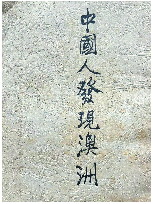 中國人發現澳洲